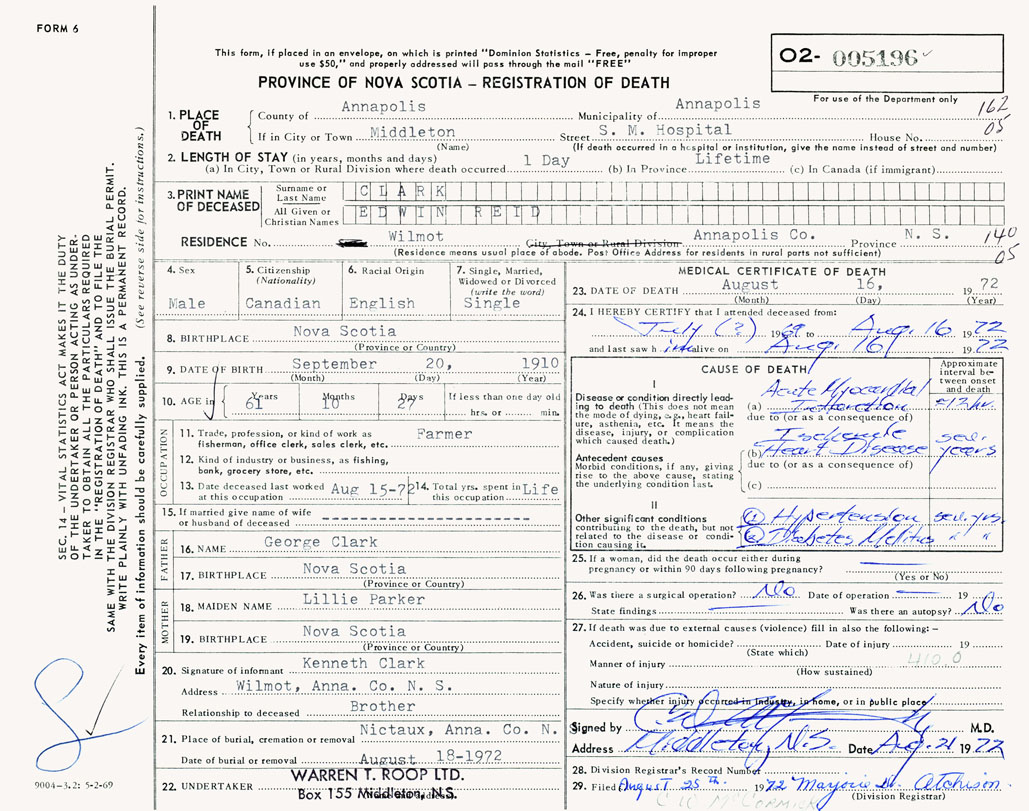 FORM 6
This form, if placed in an envelope, on which is printed "Dominion Statistics – Free, penalty for improper
use $50," and properly addressed will pass through the mail "FREE"
PROVINCE OF NOVA SCOTIA – REGISTRATION OF DEATH
02- 005196
For use of the Department only
162
05
1. PLACE OF DEATH
County of Annapolis Municipality of Annapolis
If in City or Town Middleton Street S. M. Hospital House No.
(Name) (If death occurred in a hospital or institution, give the name instead of street and number)
2. LENGTH OF STAY (in years, months and days)
(a) In City, Town or Rural Division where death occurred 1 Day (b) In Province Lifetime (c) In Canada (if immigrant)
3. PRINT NAME OF DECEASED
Surname or Last Name CLARK
All Given or Christian Names EDWIN REID
RESIDENCE No. Wilmot City, Town or Rural Division Annapolis Co. Province N. S. 140
05
(Residence means usual place of abode. Post Office Address for residents in rural parts not sufficient)
4. Sex
Male
5. Citizenship
(Nationality)
Canadian
6. Racial Origin
English
7. Single, Married,
Widowed or Divorced
(write the word)
Single
8. BIRTHPLACE Nova Scotia
(Province or Country)
9. DATE OF BIRTH September 20, 1910
(Month) (Day) (Year)
10. AGE in Years 61 Months 10 Days 27 If less than one day old
hrs. or min.
OCCUPATION
11. Trade, profession, or kind of work as
fisherman, office clerk, sales clerk, etc. Farmer
12. Kind of industry or business, as fishing,
bank, grocery store, etc.
13. Date deceased last worked
at this occupation Aug 15-72
14. Total yrs. spent in
this occupation Life
15. If married give name of wife
or husband of deceased
FATHER
16. NAME George Clark
17. BIRTHPLACE Nova Scotia
(Province or Country)
MOTHER
18. MAIDEN NAME Lillie Parker
19. BIRTHPLACE Nova Scotia
(Province or Country)
20. Signature of informant Kenneth Clark
Address Wilmot, Anna. Co. N. S.
Relationship to deceased Brother
21. Place of burial, cremation or removal Nictaux, Anna. Co. N. S
Date of burial or removal August 18-1972
22. UNDERTAKER WARREN T. ROOP LTD.
Box 155 Middleton, N.S.
MEDICAL CERTIFICATE OF DEATH
23. DATE OF DEATH August 16, 1972
(Month) (Day) (Year)
24. I HEREBY CERTIFY that I attended deceased from:
July (?) 1969 to Aug. 16 1972
and last saw h im alive on Aug. 16 1972
CAUSE OF DEATH
Approximate
interval be-
tween onset
and death
I
Disease or condition directly lead-
ing to death (This does not mean
the mode of dying, e.g., heart fail-
ure, asthenia, etc. It means the
disease, injury, or complication
which caused death.)
(a) Acute Myocardial
Infarction 12 hr.
due to (or as a consequence of)
Antecedent causes
Morbid conditions, if any, giving
rise to the above cause, stating
the underlying condition last.
(b) Ischemic
Heart Disease sev. years
due to (or as a consequence of)
(c)
II
Other significant conditions
contributing to the death, but not
related to the disease or condi-
tion causing it.
① Hypertension sev. yrs.
② Diabetes Mellitus " "
25. If a woman, did the death occur either during
pregnancy or within 90 days following pregnancy?
(Yes or No)
26. Was there a surgical operation? No Date of operation 19
State findings Was there an autopsy? No
27. If death was due to external causes (violence) fill in also the following: –
Accident, suicide or homicide? Date of injury 19
(State which)
410.0
Manner of injury
(How sustained)
Nature of injury
Specify whether injury occurred in industry, in home, or in public place
Signed by M.D.
Address Middleton, N.S. Date Aug. 21 1972
28. Division Registrar's Record Number
29. Filed August 25th 1972 Marjorie Atchison
(Division Registrar)
SEC. 14 – VITAL STATISTICS ACT MAKES IT THE DUTY
OF THE UNDERTAKER OR PERSON ACTING AS UNDER-
TAKER TO OBTAIN ALL THE PARTICULARS REQUIRED
IN THE "REGISTRATION OF DEATH" AND TO FILE THE
SAME WITH THE DIVISION REGISTRAR WHO SHALL ISSUE THE BURIAL PERMIT.
WRITE PLAINLY WITH UNFADING INK. THIS IS A PERMANENT RECORD.
Every item of information should be carefully supplied. (See reverse side for instructions.)
9004-3.2: 5-2-69